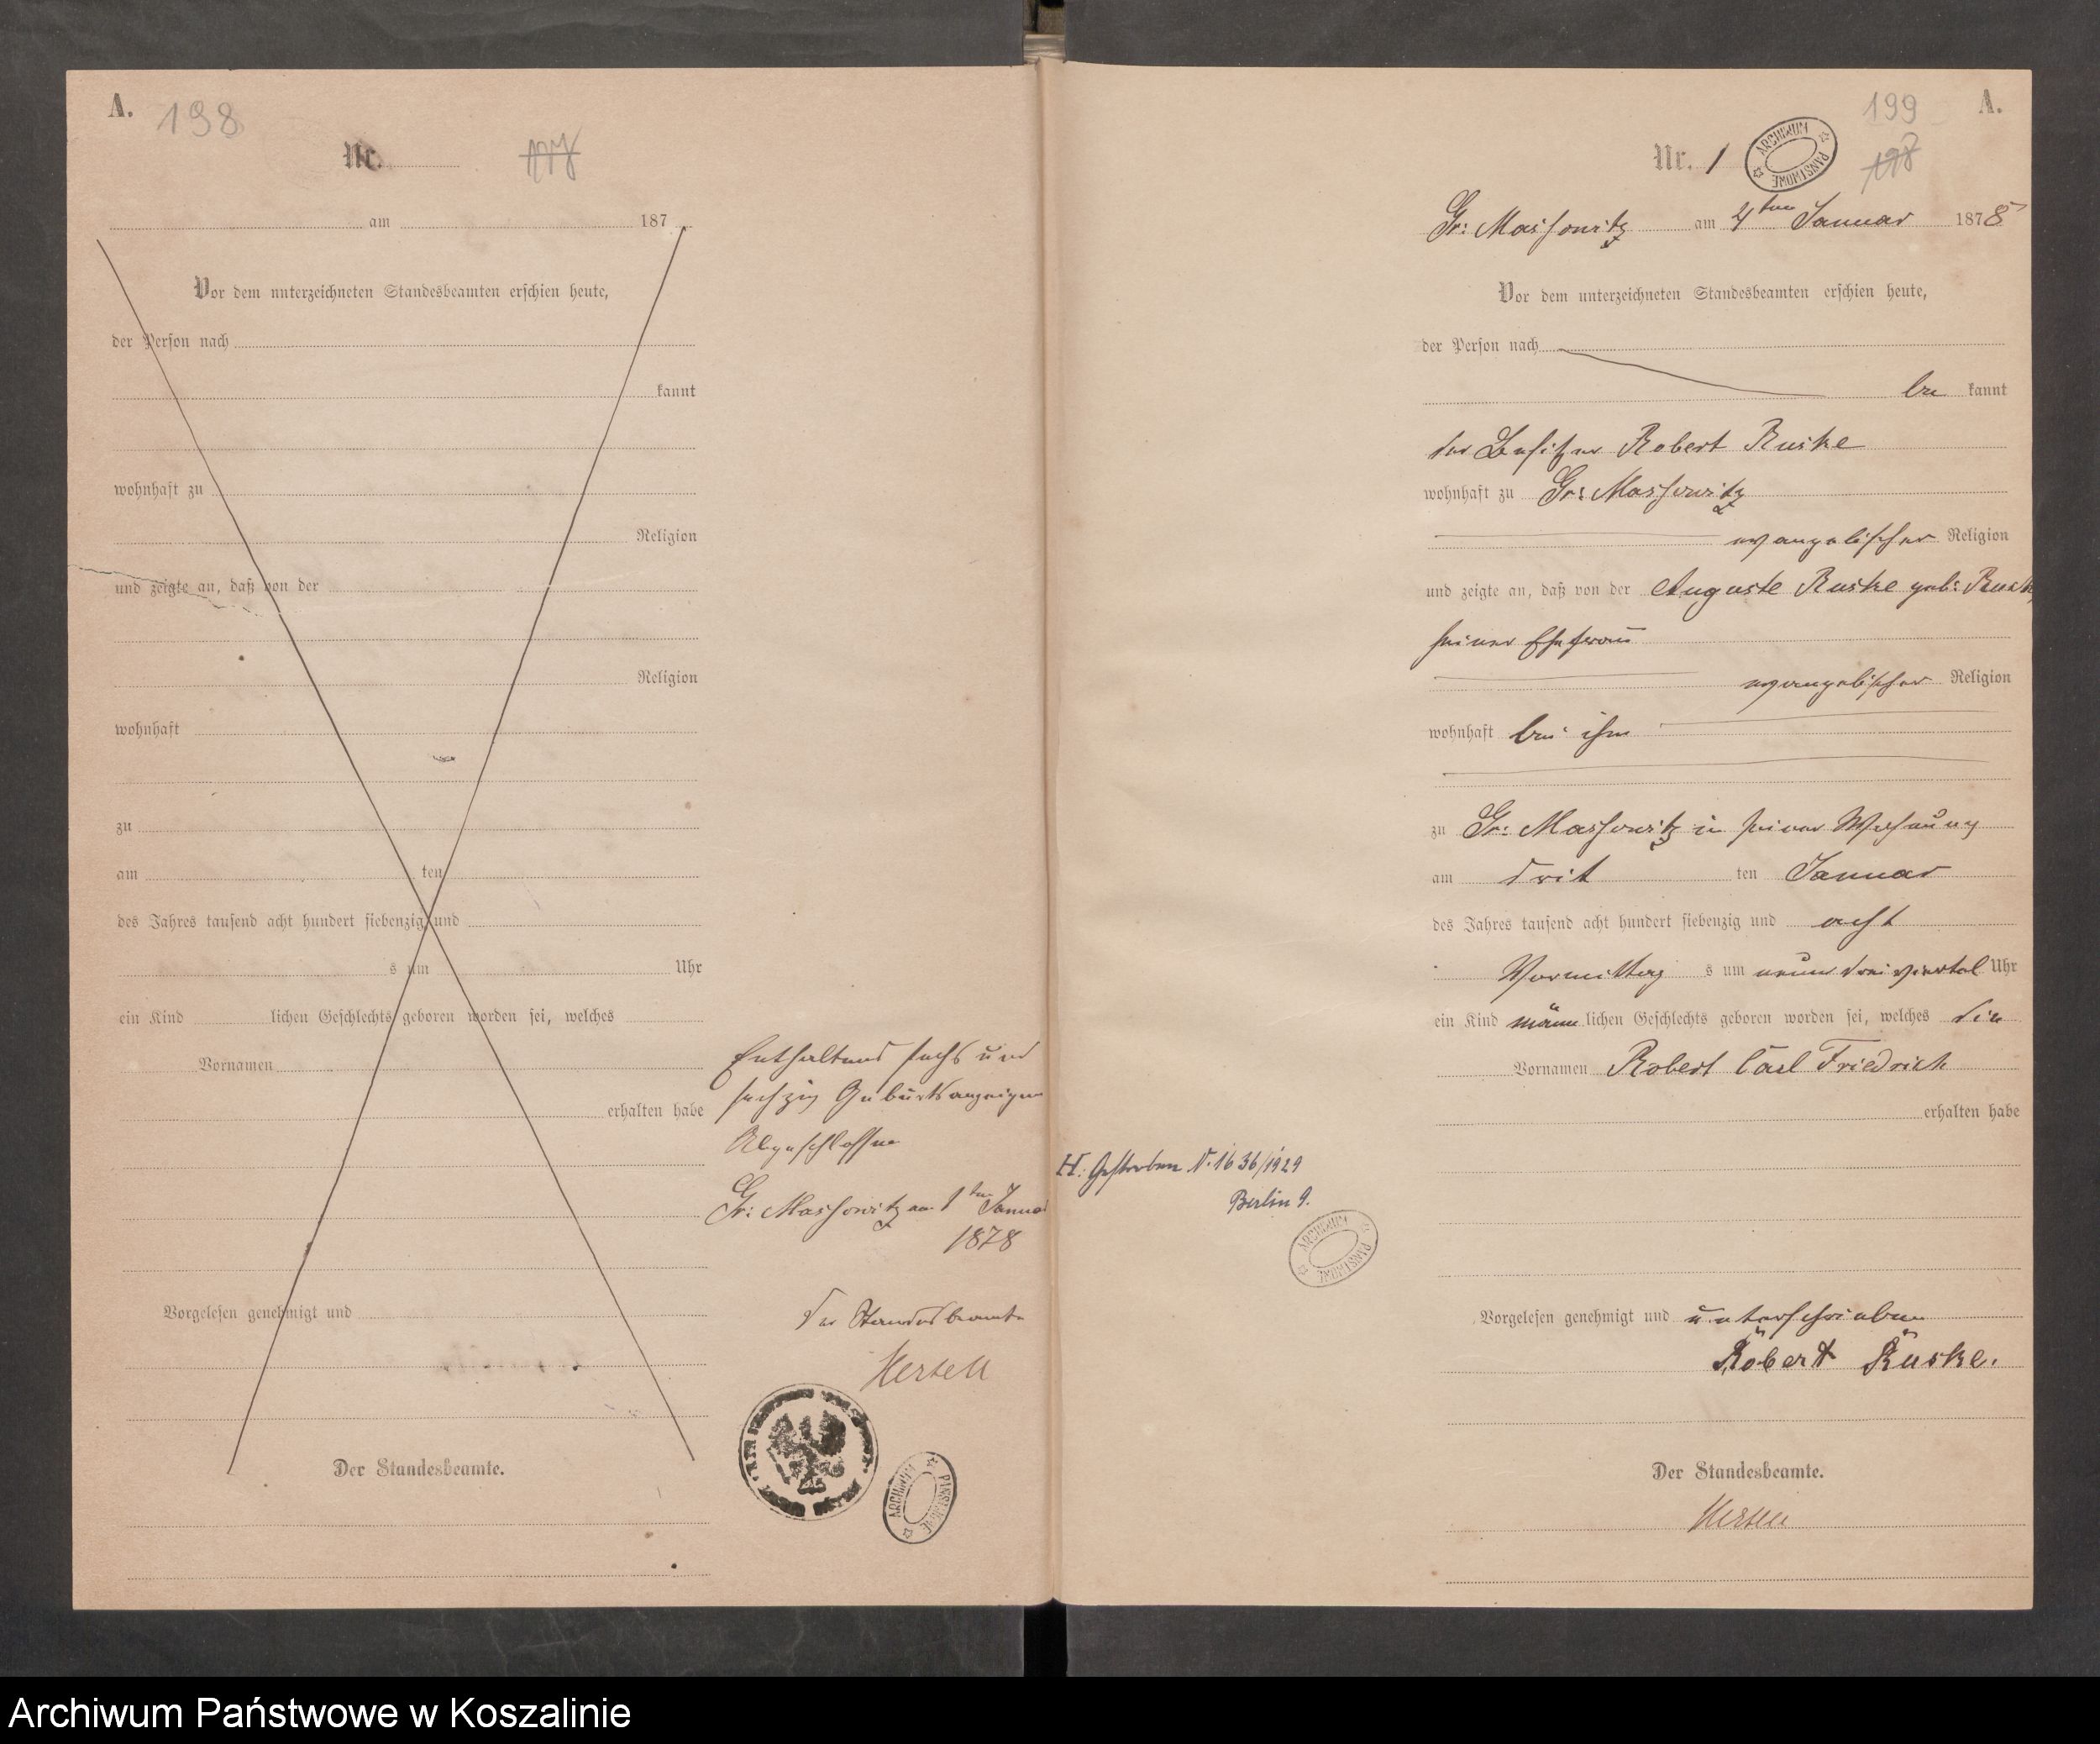 A.
198
Nr.
am 187
Vor dem unterzeichneten Standesbeamten erschien heute,
der Person nach
kannt
wohnhaft zu
Religion
und zeigte an, daß von der
Religion
wohnhaft
zu
am ten
des Jahres tausend acht hundert siebenzig und
s um Uhr
ein Kind lichen Geschlechts geboren worden sei, welches
Vornamen
erhalten habe
Vorgelesen genehmigt und
Der Standesbeamte.
Enthaltend sechs und
sechzig Geburtsanzeigen
Abgeschlossen
Gr: Massowitz am 1ten Januar
1878
Der Standesbeamte
ARCHIWUM PAŃSTWOWE
199
A.
Nr. 1
ARCHIWUM PAŃSTWOWE
198
Gr: Massowitz am 4ten Januar 1878
Vor dem unterzeichneten Standesbeamten erschien heute,
der Person nach
be kannt
der Besitzer Robert Ruske
wohnhaft zu Gr: Massowitz
evangelischer Religion
und zeigte an, daß von der Auguste Ruske geb:
seiner Ehefrau
evangelischer Religion
wohnhaft bei ihm
zu Gr: Massowitz in seiner Wohnung
am drit ten Januar
des Jahres tausend acht hundert siebenzig und acht
Vormittag s um neun dreiviertel Uhr
ein Kind männ lichen Geschlechts geboren worden sei, welches die
Vornamen Robert Carl Friedrich
erhalten habe
H: Gestorben N. 1636/1929
Berlin 9.
ARCHIWUM PAŃSTWOWE
Vorgelesen genehmigt und unterschrieben
Robert Ruske.
Der Standesbeamte.
Archiwum Państwowe w Koszalinie